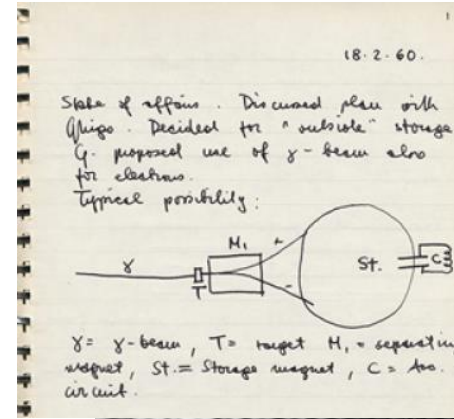 1
18.2.60.
State of affairs. Discussed plan with
Ghigo. Decided for "outside" storage
G. proposed use of γ-beam also
for electrons.
Typical possibility:
γ T M₁ + - St. C
γ = γ-beam, T = target M₁ = separatin
magnet, St. = Storage magnet, C = Acc.
circuit.